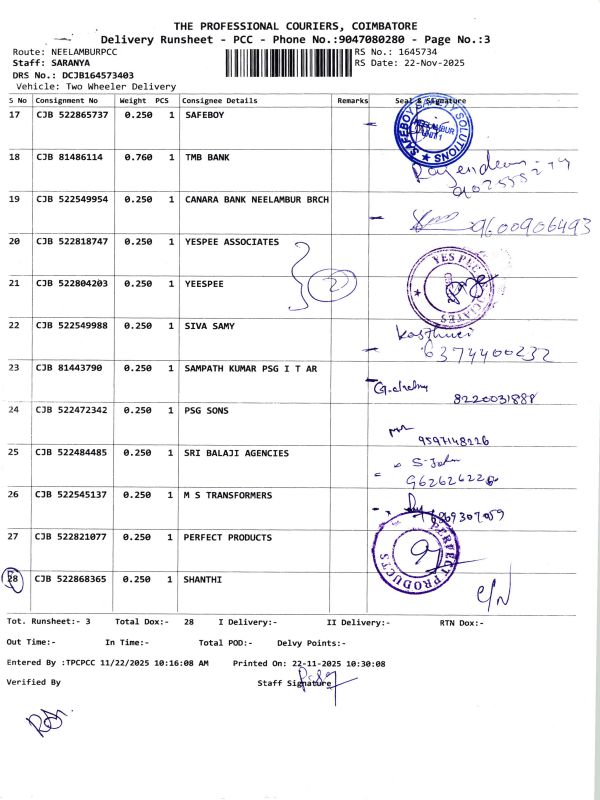 THE PROFESSIONAL COURIERS, COIMBATORE
Delivery Runsheet - PCC - Phone No.:9047080280 - Page No.:3
Route: NEELAMBURPCC
RS No.: 1645734
Staff: SARANYA
RS Date: 22-Nov-2025
DRS No.: DCJB164573403
Vehicle: Two Wheeler Delivery
S No Consignment No Weight PCS Consignee Details Remarks Seal & Signature
17 CJB 522865737 0.250 1 SAFEBOY
SAFEBOY SAFETY SOLUTIONS
NEELAMBUR
UNIT 1
18 CJB 81486114 0.760 1 TMB BANK
19 CJB 522549954 0.250 1 CANARA BANK NEELAMBUR BRCH
9600906493
20 CJB 522818747 0.250 1 YESPEE ASSOCIATES
2
21 CJB 522804203 0.250 1 YEESPEE
22 CJB 522549988 0.250 1 SIVA SAMY
6374400232
23 CJB 81443790 0.250 1 SAMPATH KUMAR PSG I T AR
8220031888
24 CJB 522472342 0.250 1 PSG SONS
9597148226
25 CJB 522484485 0.250 1 SRI BALAJI AGENCIES
S-John
26 CJB 522545137 0.250 1 M S TRANSFORMERS
27 CJB 522821077 0.250 1 PERFECT PRODUCTS
PERFECT PRODUCTS
28 CJB 522868365 0.250 1 SHANTHI
C/N
Tot. Runsheet:- 3 Total Dox:- 28 I Delivery:- II Delivery:- RTN Dox:-
Out Time:- In Time:- Total POD:- Delvy Points:-
Entered By :TPCPCC 11/22/2025 10:16:08 AM Printed On: 22-11-2025 10:30:08
Verified By Staff Signature